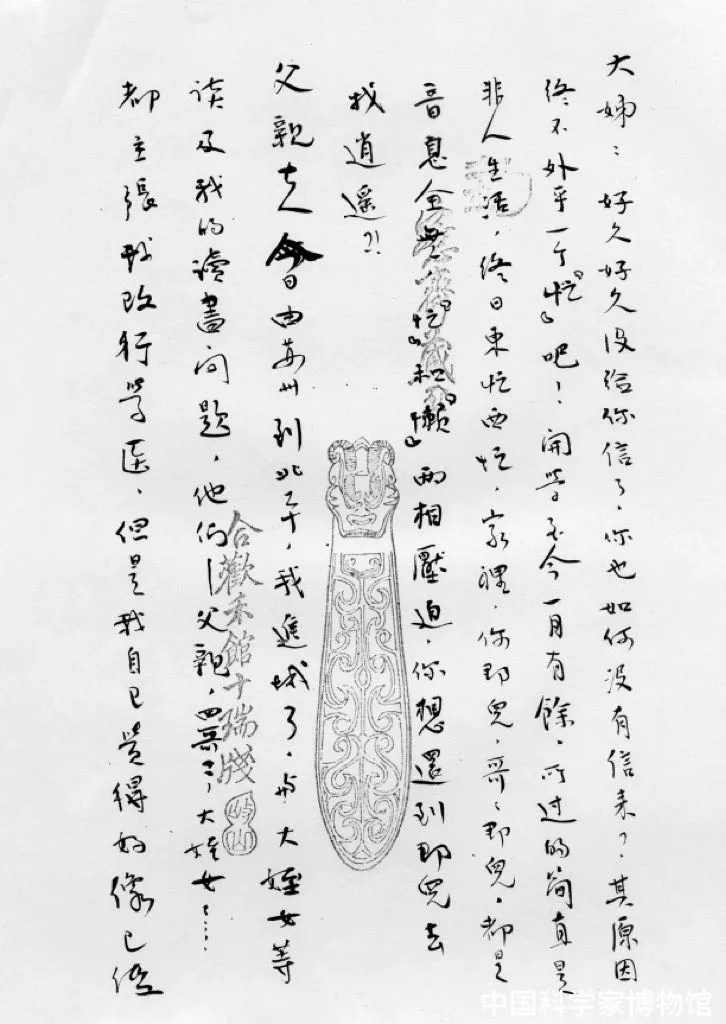 大姊：好久好久没給你信了，你也如何没有信来？其原因
終不外乎一个『忙』吧！開学至今一月有餘，所过的简直是
非人生活，終日東忙西忙，家裡，你那兒，哥〻那兒，都是
音息全無，『忙』和『懒』兩相壓迫，你想還到那兒去
找逍遥?!
父親大人今日由蘇州到北平，我進城了，与大姪女等
谈及我的讀書问题，他们—父親，四哥〻，大姪女……
都主張我改行学医，但是我自己觉得好像已经
合歡禾館十瑞牋
中国科学家博物馆